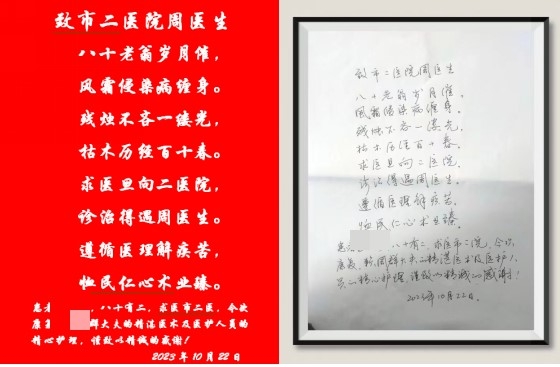 致市二医院周医生
八十老翁岁月催，
风霜侵染病缠身。
残烛不吝一缕光，
枯木历经百十春。
求医旦向二医院，
诊治得遇周医生。
遵循医理解疾苦，
恤民仁心术业臻。
患者 ，八十有二，求医市二医，今次
康复 群大夫的精湛医术及医护人员的
精心护理，谨致以精诚的感谢！
2023年10月22日
致市二医院周医生
八十老翁岁月催，
风霜侵染病缠身。
残烛不吝一缕光，
枯木历经百十春。
求医旦向二医院，
诊治得遇周医生。
遵循医理解疾苦，
恤民仁心术业臻。
八十有二，求医市二院，今次
康复，群大夫的精湛医术及医护人
员的精心护理，谨致以精诚的感谢！
2023年10月22日。